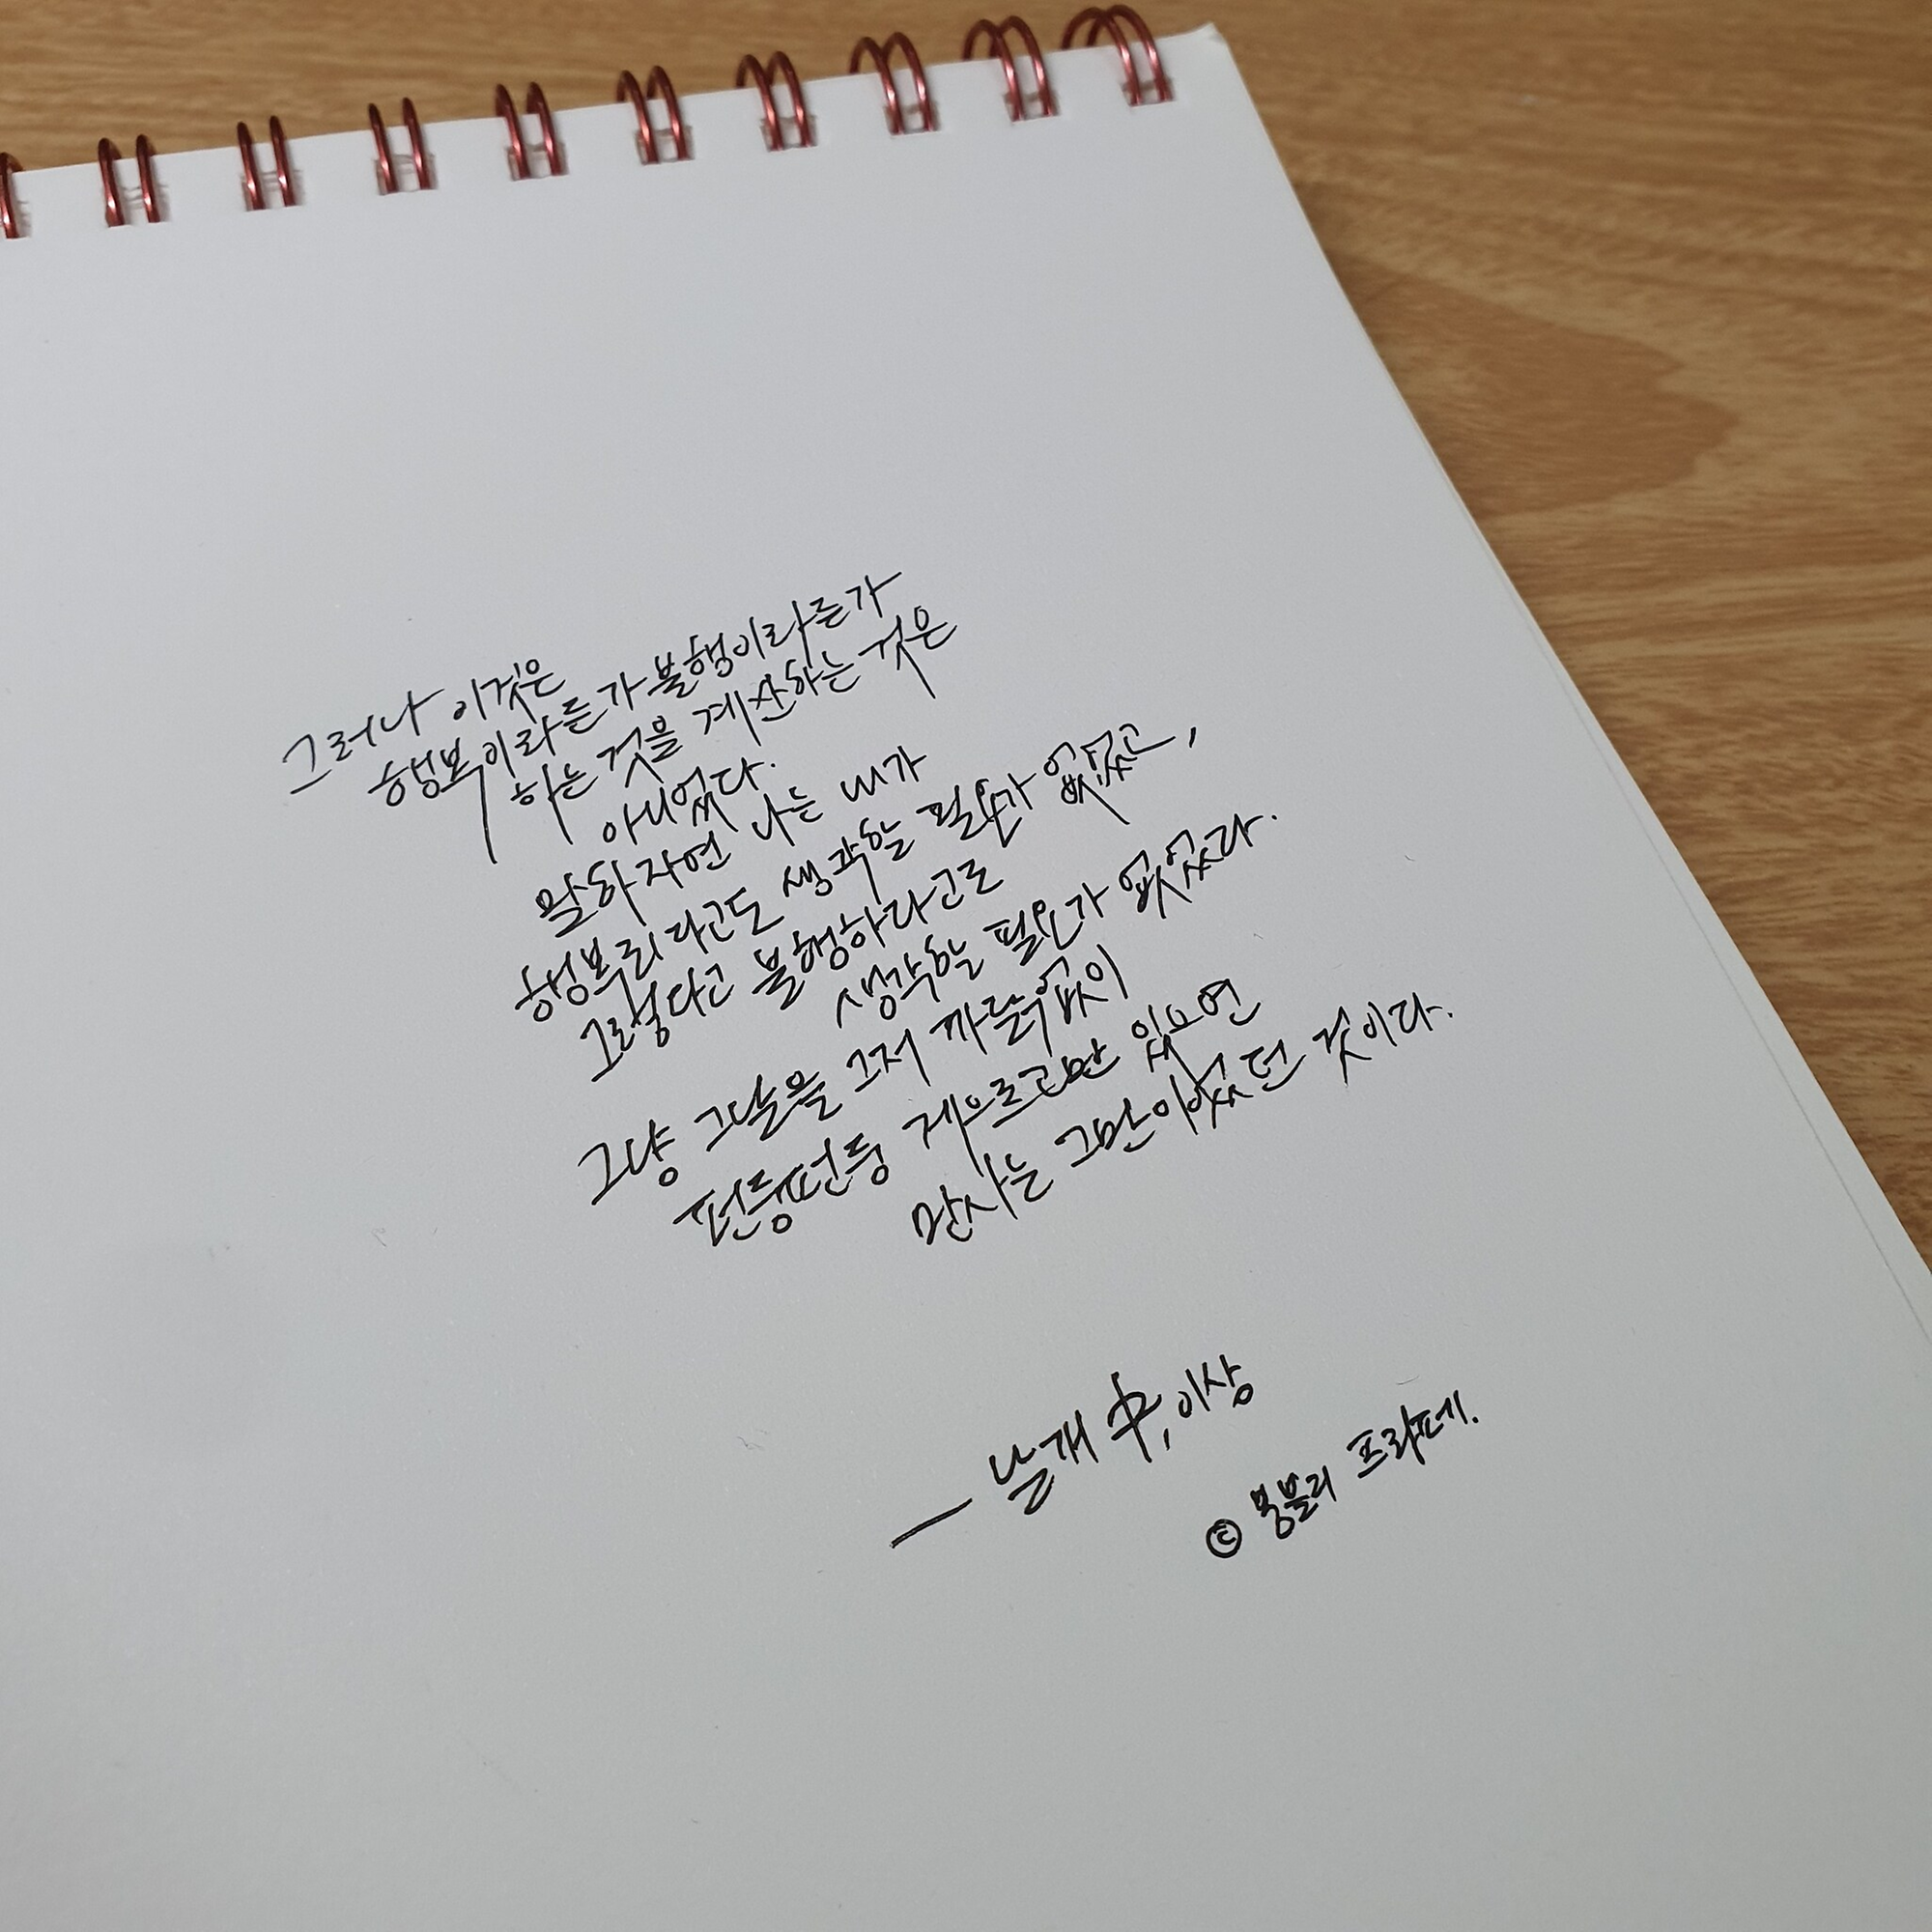 그러나 이것은
행복이라든가 불행이라든가
하는 것을 계산하는 것은
아니었다.
말하자면 나는 내가
행복되다고도 생각할 필요가 없었고,
그렇다고 불행하다고도
생각할 필요가 없었다.
그냥 그날을 그저 까닭없이
펀둥펀둥 게으르고만 있으면
만사는 그만이었던 것이다.
— 날개 中, 이상
© 봉블리 프라페.